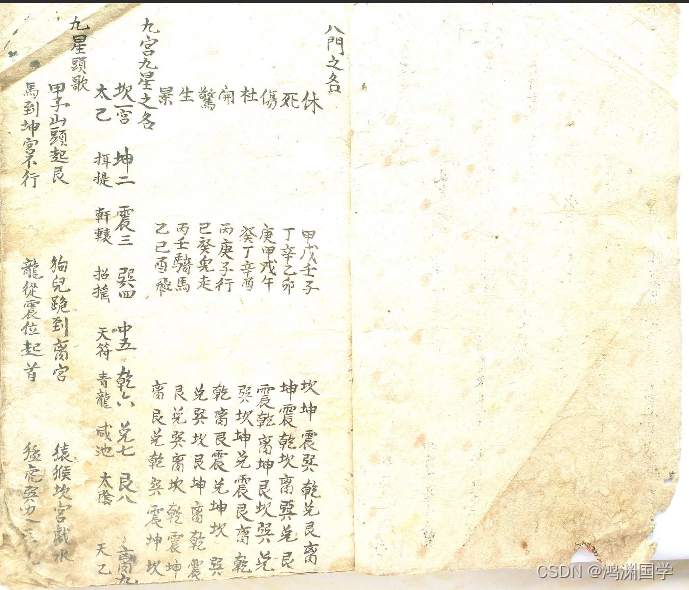 八門之名
休 甲戊壬子 坎坤震巽乾兌艮离
死 丁辛乙卯 坤震乾坎离巽兌艮
傷 庚甲戊午 震乾离坤艮坎巽兌
杜 癸丁辛酉 巽坎坤兌震艮离乾
開 丙庚子行 乾离艮震兌坤坎巽
驚 已癸兔走 兌巽坎艮坤离乾震
生 丙壬騎馬 艮兌巽离坎乾震坤
景 乙已酉飛 离艮兌乾巽震坤坎
九宮九星之名
坎一宮 坤二 震三 巽四 中五 乾六 兌七 艮八 离九
太乙 提 軒轅 招搖 天符 青龍 咸池 太陰 天乙
九星頭歌
甲子山頭起艮 狗兒跪到离宮 猿猴坎宮戲水
馬到坤宮不行 龍從震位起首 猛虎巽
CSDN @鸿渊国学